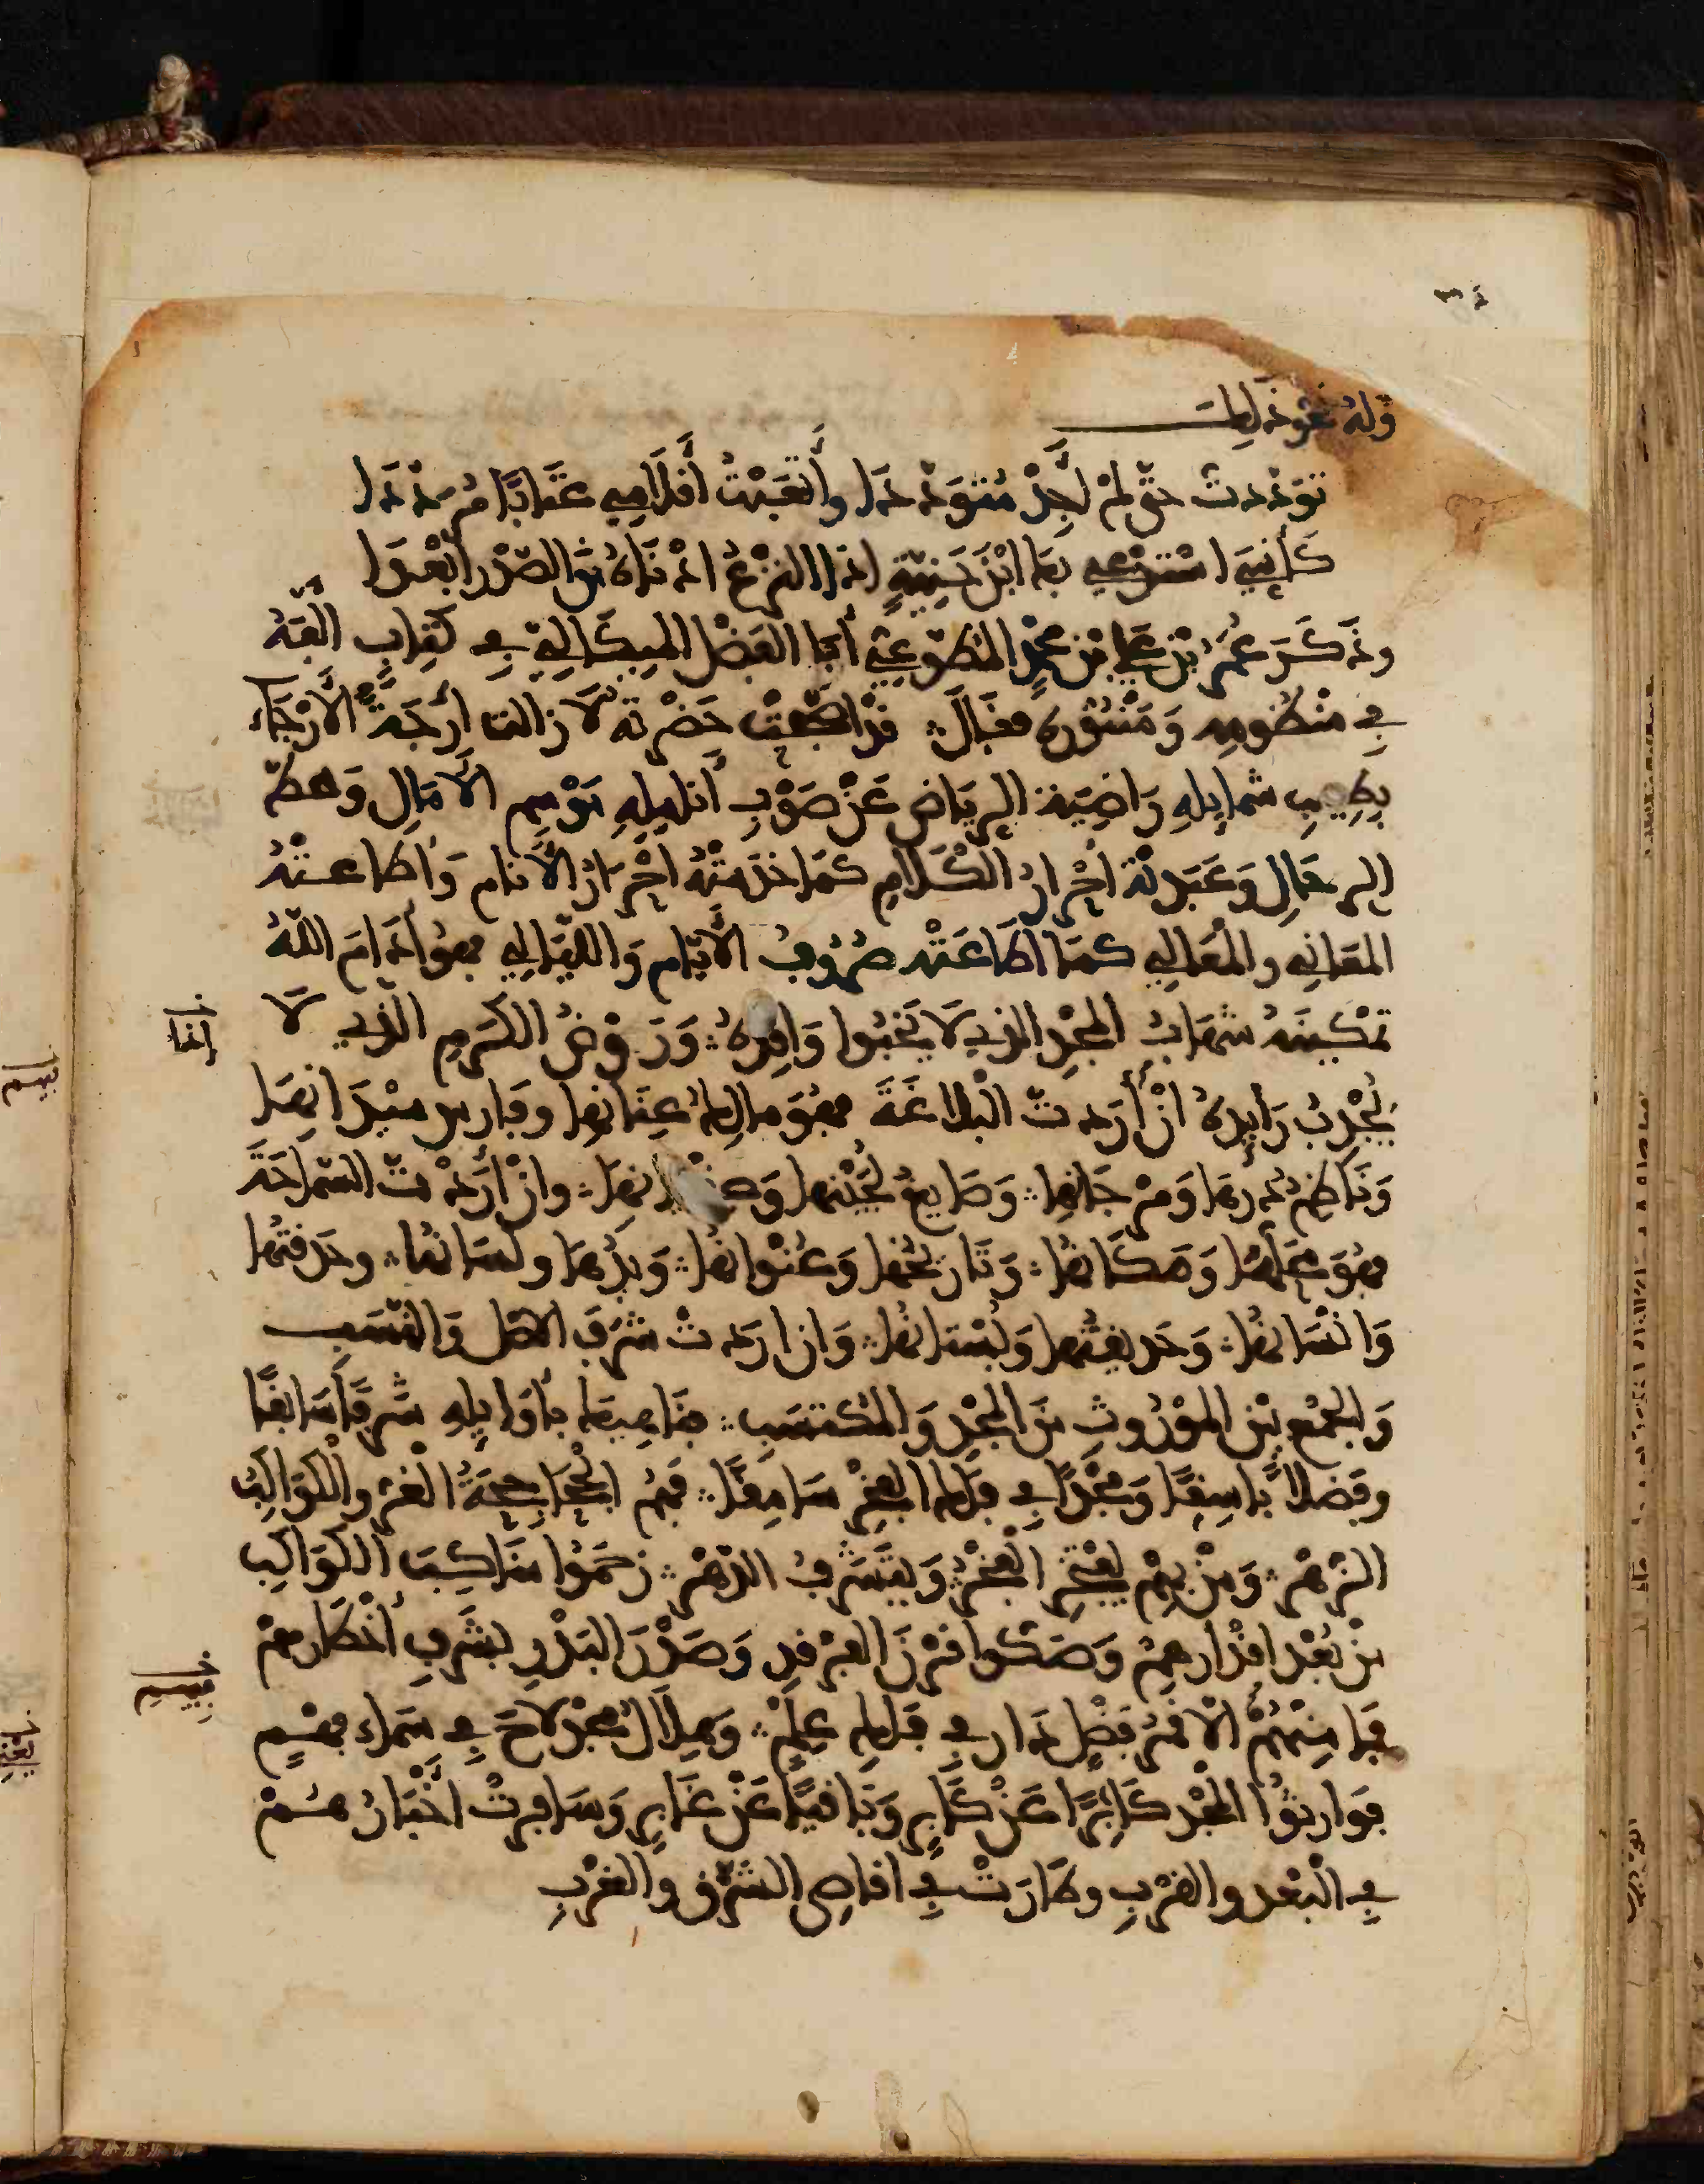 وله نحو ذلك
تَوَدَّدتُ حتّى لمْ أَجِدْ مُتَوَدَّدَا وأَتْعَبْتُ أَقلَامِي عتَابًا مُرَدَّدَا
كَأنِّيَ اسْتَدْعِي بهِ ابْنَ حَنِيَّةٍ اذا النزعُ ادْنَاهُ مِنَ الصَّدْرِ أبْعَدَا
وذَكَرَ عُمَرُ بْن عَلي بْن محمدٍ المطوّعِيّ أبَا الفَضْل الميكَالِيّ فِي كتابٍ ألّفَهُ
فِي منْظُومِهِ وَمَنْثُورِه فقالَ قَدْ أصْبَحَتْ حَضْرتُه لَا زالت أرِجَةَ الأَرْجَاء
بِطِيبِ شمايِلِهِ رَاضِيَة الرياض عَنْ صَوْبِ أنامِلِهِ مَوْسِم الآمَالِ وَمحطّ
الرحَالِ وَعَبَدتْهُ أحْرَارُ الكَلَامِ كمَا خدَمَتْهُ أحْرَارُ الأَنام وَأطاعتْهُ
المعَانِي والمَعَالِي كمَا أطَاعَتْه صُرُوفُ الأيّام وَالليَالِي فهوَ أدَامَ اللهُ
تمْكينَهُ شهَابُ المجْدِ الذي لَا يَخْبُوا وَاقِدهُ وَرَوْضُ الكَرَمِ الذي لَا
إنما
يُجْدِبُ رَايِدهُ انْ أرَدتَ البَلاغَةَ فهُوَ مالِكُ عِنَانِهَا وفَارِس ميْدَانِهَا
وَنَاظِمُ دُرِّهَا وَمرْجَانِهَا وَصَايِغُ لُجَيْنِهَا وَعِقْيانِهَا وانْ أرَدْتَ السّمَاحَةَ
فهُوَ محَلُّهَا وَمَكَانُهَا وَتَاريخُهَا وَعُنْوانُهَا وَيَدُهَا ولسَانُها وحَدقتُها
وَانْسَانُهَا وَحَدِيقَتُها وَبُسْتانُها وَان اردتَ شَرَفَ الاصْل وَالنَّسَب
وَالجمْع بيْن المَوْرُوثِ منَ المجْدِ وَالمُكْتسَبِ فنَاهِيكَ بأوَايِلِهِ شَرَفًا سَابِقًا
وفَضلًا باسِقًا وَمجْدًا فِي فلَكِ الفَخْرِ سَامِقًا فهُمُ الجحَاجِحَةُ الغُرُّ والكَوَاكِبُ
الزُّهْر وَمَنْ بِهِمْ يفْتَخِرُ الفَخْرُ وَيتَشَرّفُ الدّهْرُ زحَمُوا منَاكِبَ الكَوَاكِبِ
مِنْ بُعْدِ اقْدَارِهِمْ وَصَكُّوا فَرْقَ الفَرْقدِ وَصَدْرَ البَدْرِ بشَرَفِ أخْطَارِهمْ
فمَا مِنْهُمْ الّا قَمَرُ فَضْلٍ دَار في فلَكِ عِلْمْ وَهِلَالُ مجْدٍ لاحَ فِي سَمَاء فهْمٍ
فيهم
فوَارِثُوا المجْد كَابِرًا عَنْ كَابِرٍ وَبَاقيًا عَنْ غَابِرٍ وَسَافرتْ أخْبَارُهُمْ
فِي البُعْد والقرْبِ وطَارَتْ فِي أقاصِي الشَّرْق والغرْبِ